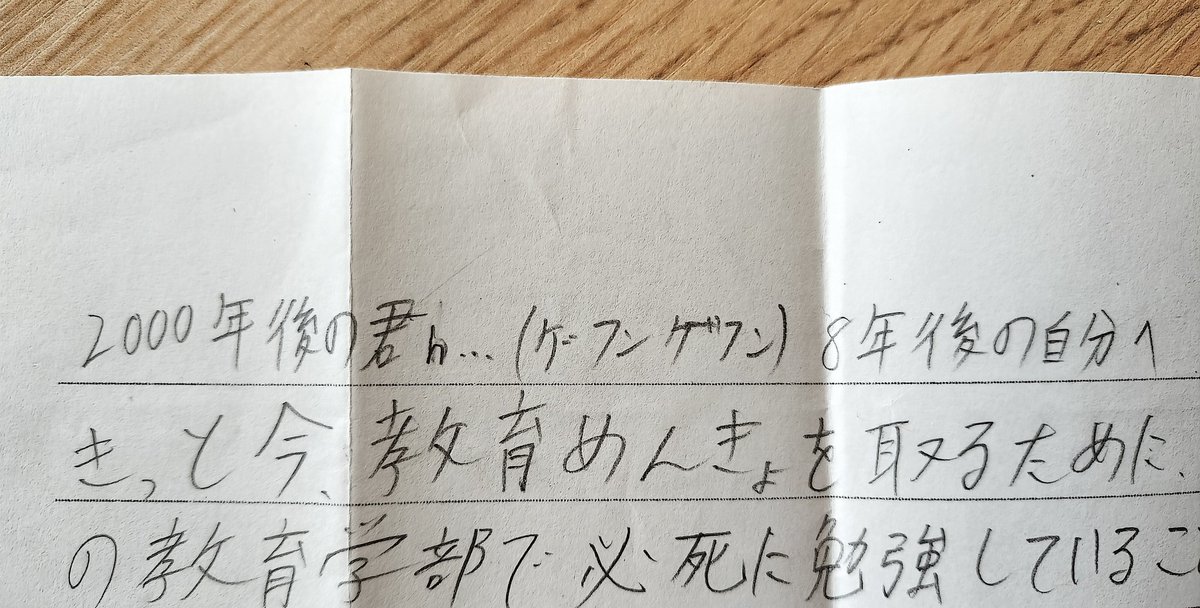 2000年後の君h…(ゲーフンゲフン) 8年後の自分へ
きっと今、教育めんきょを取るために、
の教育学部で必死に勉強しているこ